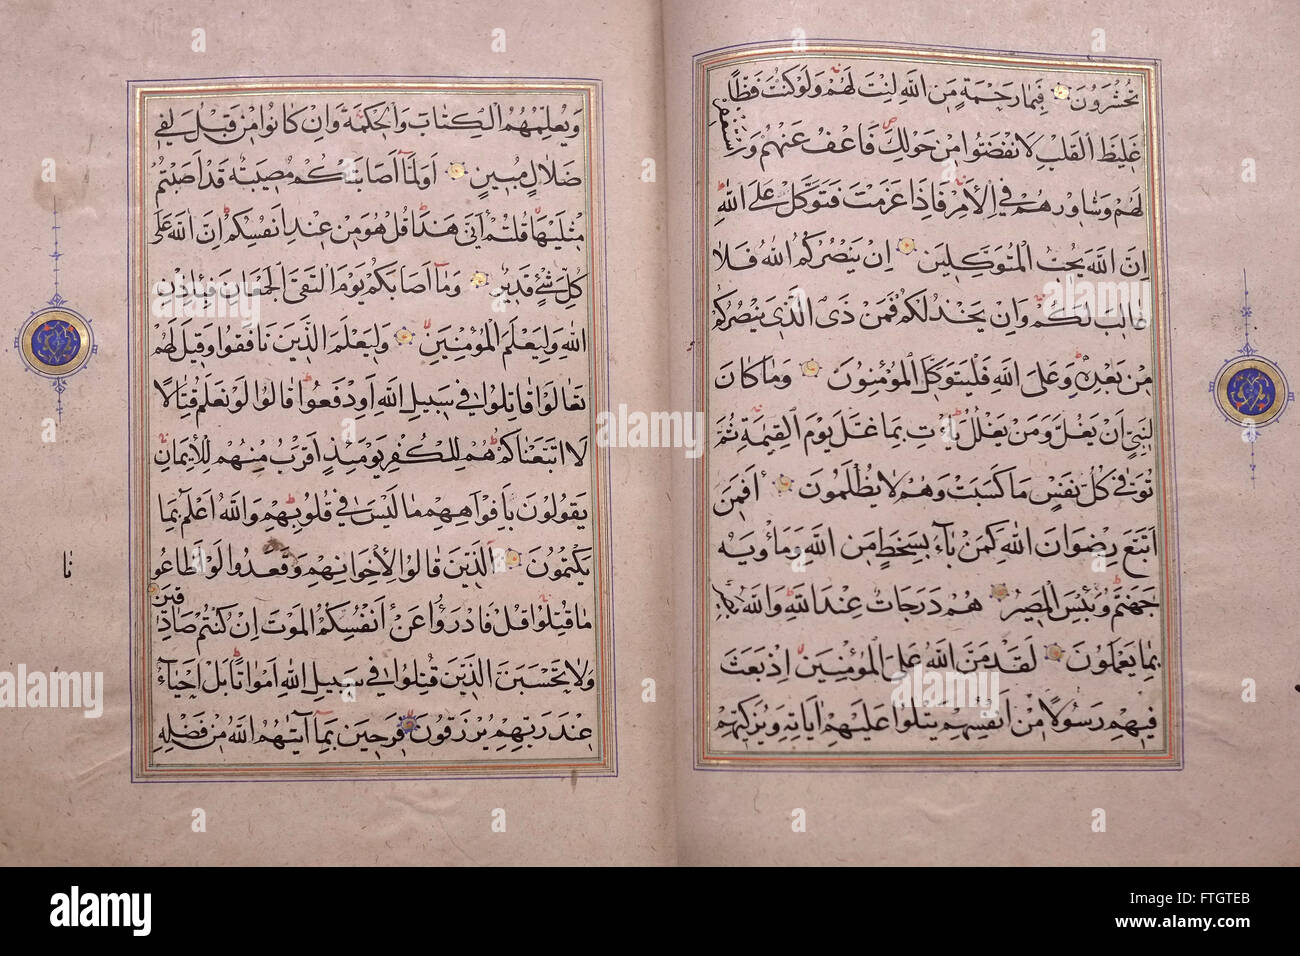 تحشرون فبما رحمة من الله لنت لهم ولو كنت فظا
غليظ القلب لانفضوا من حولك فاعف عنهم و
لهم وشاورهم في الأمر فاذا عزمت فتوكل على الله
ان الله يحب المتوكلين ان ينصركم الله فلا
غالب لكم وان يخذلكم فمن ذى الذى ينصركم
من بعده وعلى الله فليتوكل المؤمنون وما كان
لنبي ان يغل ومن يغلل يأت بما غل يوم القيمة ثم
توفى كل نفس ما كسبت وهم لا يظلمون افمن
اتبع رضوان الله كمن باء بسخط من الله ومأويه
جهنم وبئس المصير هم درجات عند الله والله
بما يعملون لقد من الله على المؤمنين اذ بعث
فيهم رسولا من انفسهم يتلوا عليهم اياته ويزكيهم
ويعلمهم الكتاب والحكمة وان كانوا من قبل لفي
ضلال مبين اولما اصابتكم مصيبة قد اصبتم
مثليها قلتم انى هذا قل هو من عند انفسكم ان الله على
كل شئ قدير وما اصابكم يوم التقى الجمعان فباذن
الله وليعلم المؤمنين وليعلم الذين نافقوا وقيل لهم
تعالوا قاتلوا في سبيل الله او ادفعوا قالوا لو نعلم قتالا
لا اتبعناكم هم للكفر يومئذ اقرب منهم للايمان
يقولون بافواههم ما ليس في قلوبهم والله اعلم بما
يكتمون الذين قالوا لاخوانهم وقعدوا لو اطاعو
ما قتلوا قل فادرؤا عن انفسكم الموت ان كنتم صاد
قين
ولا تحسبن الذين قتلوا في سبيل الله امواتا بل احياء
عند ربهم يرزقون فرحين بما آتيهم الله من فضله
alamy
Image ID: FTGTEB
www.alamy.com